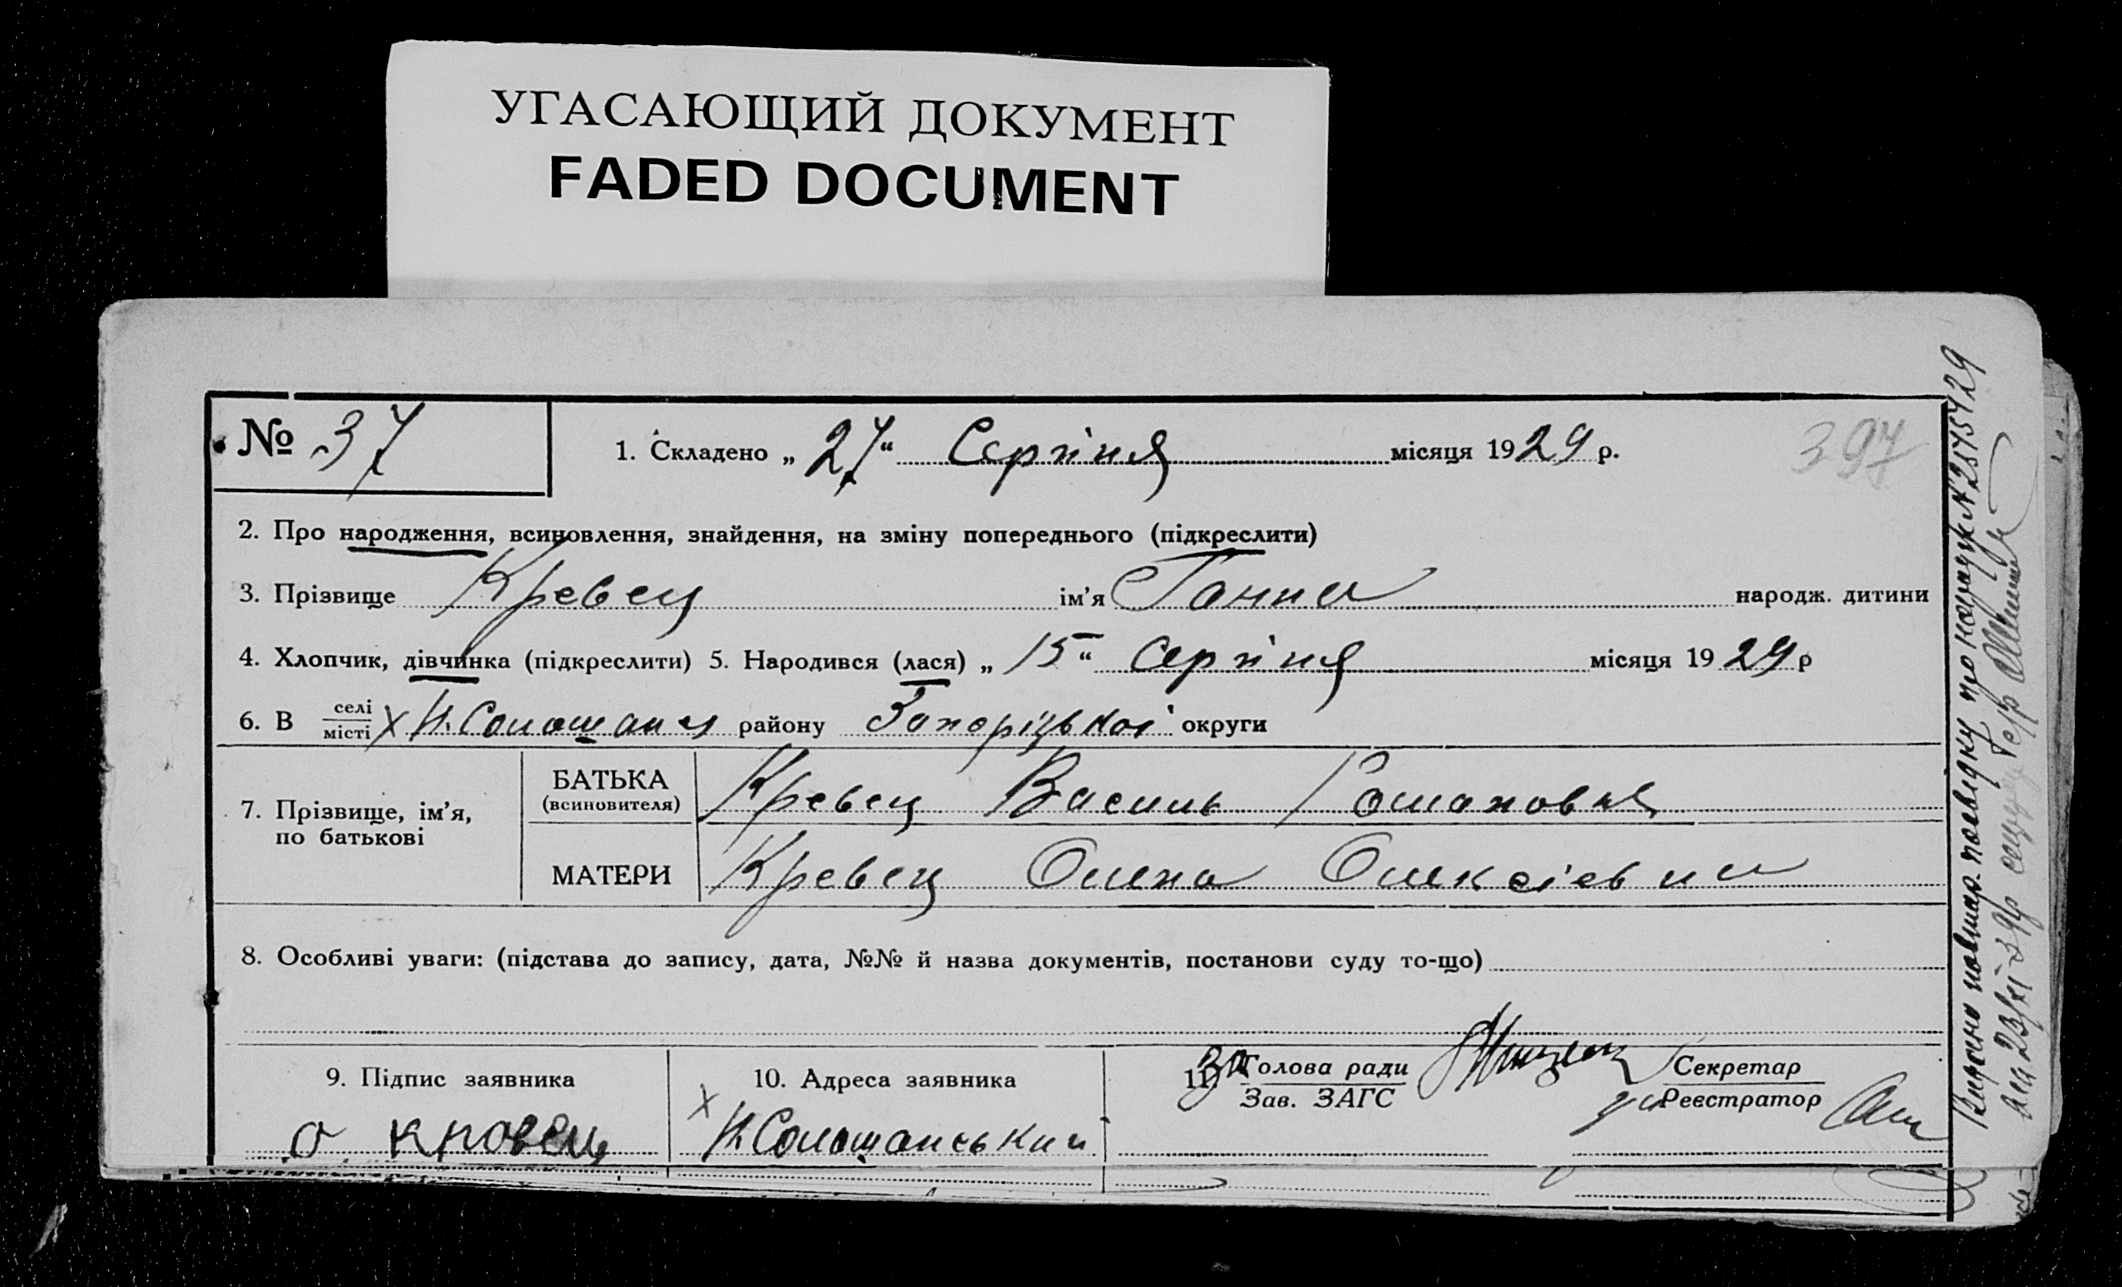 УГАСАЮЩИЙ ДОКУМЕНТ
FADED DOCUMENT
№ 37
1. Складено „ 27 “ Серпня місяця 1929 р.
397
2. Про народження, всиновлення, знайдення, на зміну попереднього (підкреслити)
3. Прізвище Кревец ім’я Ганни народж. дитини
4. Хлопчик, дівчинка (підкреслити) 5. Народився (лася) „ 15 “ серпня місяця 1929 р
6. В селі місті х району Запорізької округи
7. Прізвище, ім’я, по батькові
БАТЬКА (всиновителя) Кревец Василь Романович
МАТЕРИ Кревец Олена Олексієвна
8. Особливі уваги: (підстава до запису, дата, №№ й назва документів, постанови суду то-що)
9. Підпис заявника
о кровец
10. Адреса заявника
х
11. За Голова ради
Зав. ЗАГС
Секретар
Реєстратор
Видано